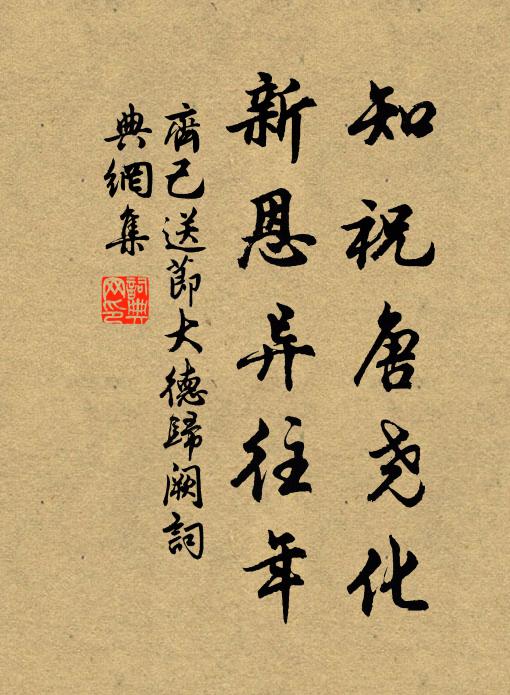 知祝唐尧化
新恩异往年
齊己送節大德歸阙詞
典網集
詞典网印